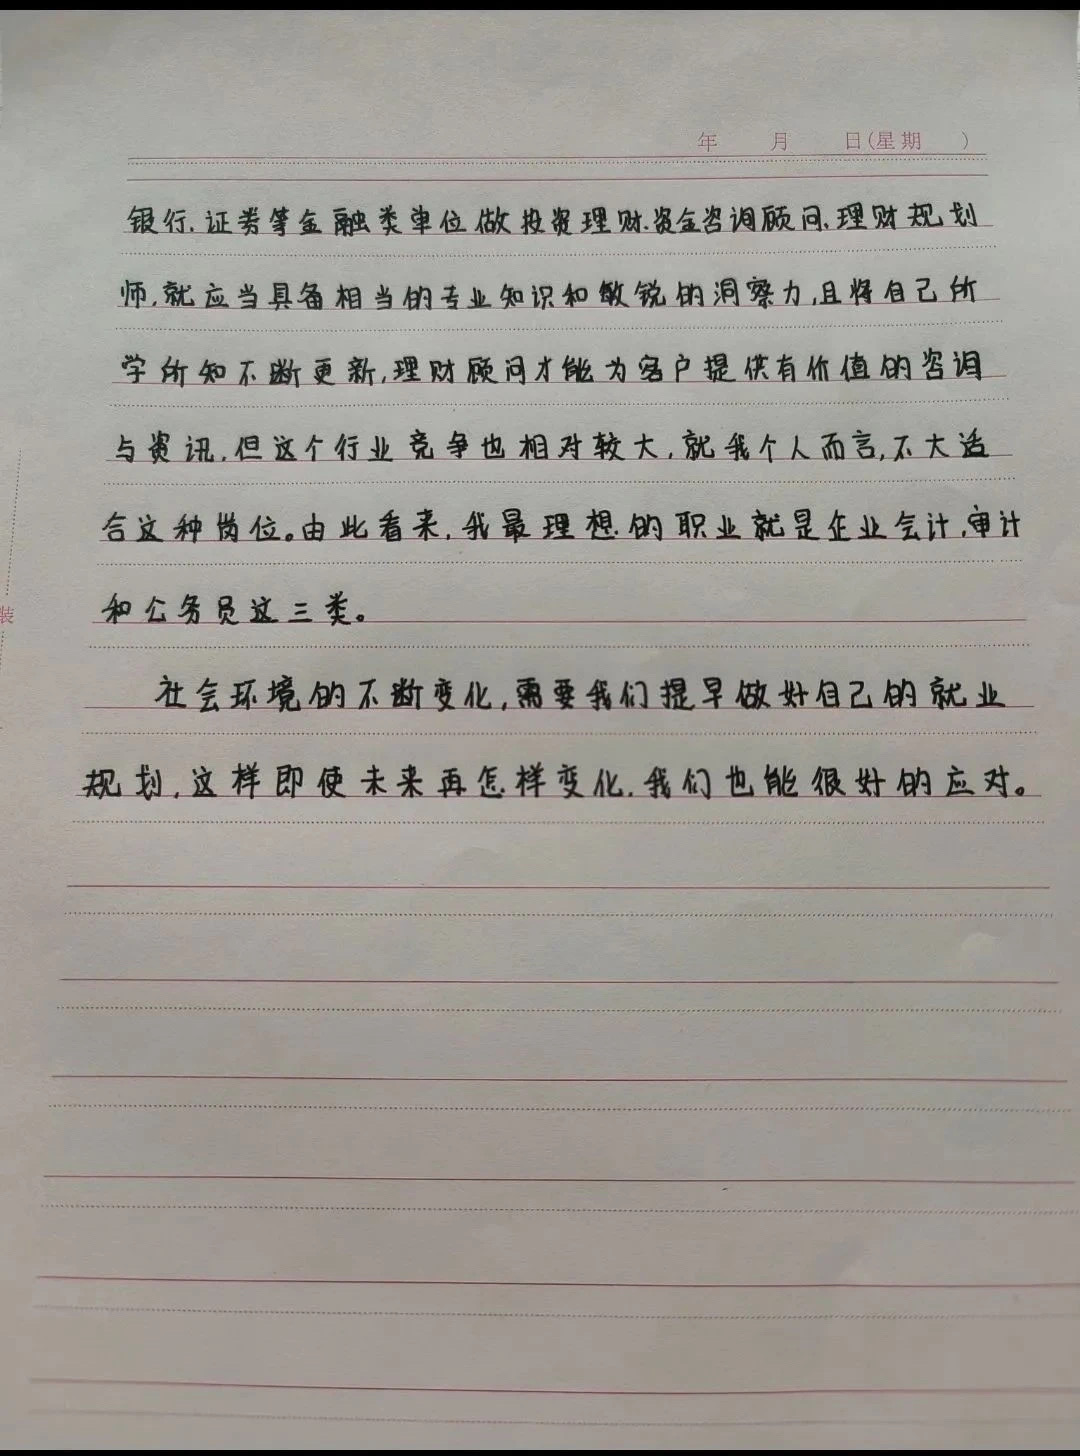 年 月 日(星期 )
银行、证券等金融类单位做投资理财、资金咨询顾问、理财规划
师,就应当具备相当的专业知识和敏锐的洞察力,且将自己所
学所知不断更新,理财顾问才能为客户提供有价值的咨询
与资讯,但这个行业竞争也相对较大,就我个人而言,不大适
合这种岗位。由此看来,我最理想的职业就是企业会计、审计
和公务员这三类。
社会环境的不断变化,需要我们提早做好自己的就业
规划,这样即使未来再怎样变化,我们也能很好的应对。
装